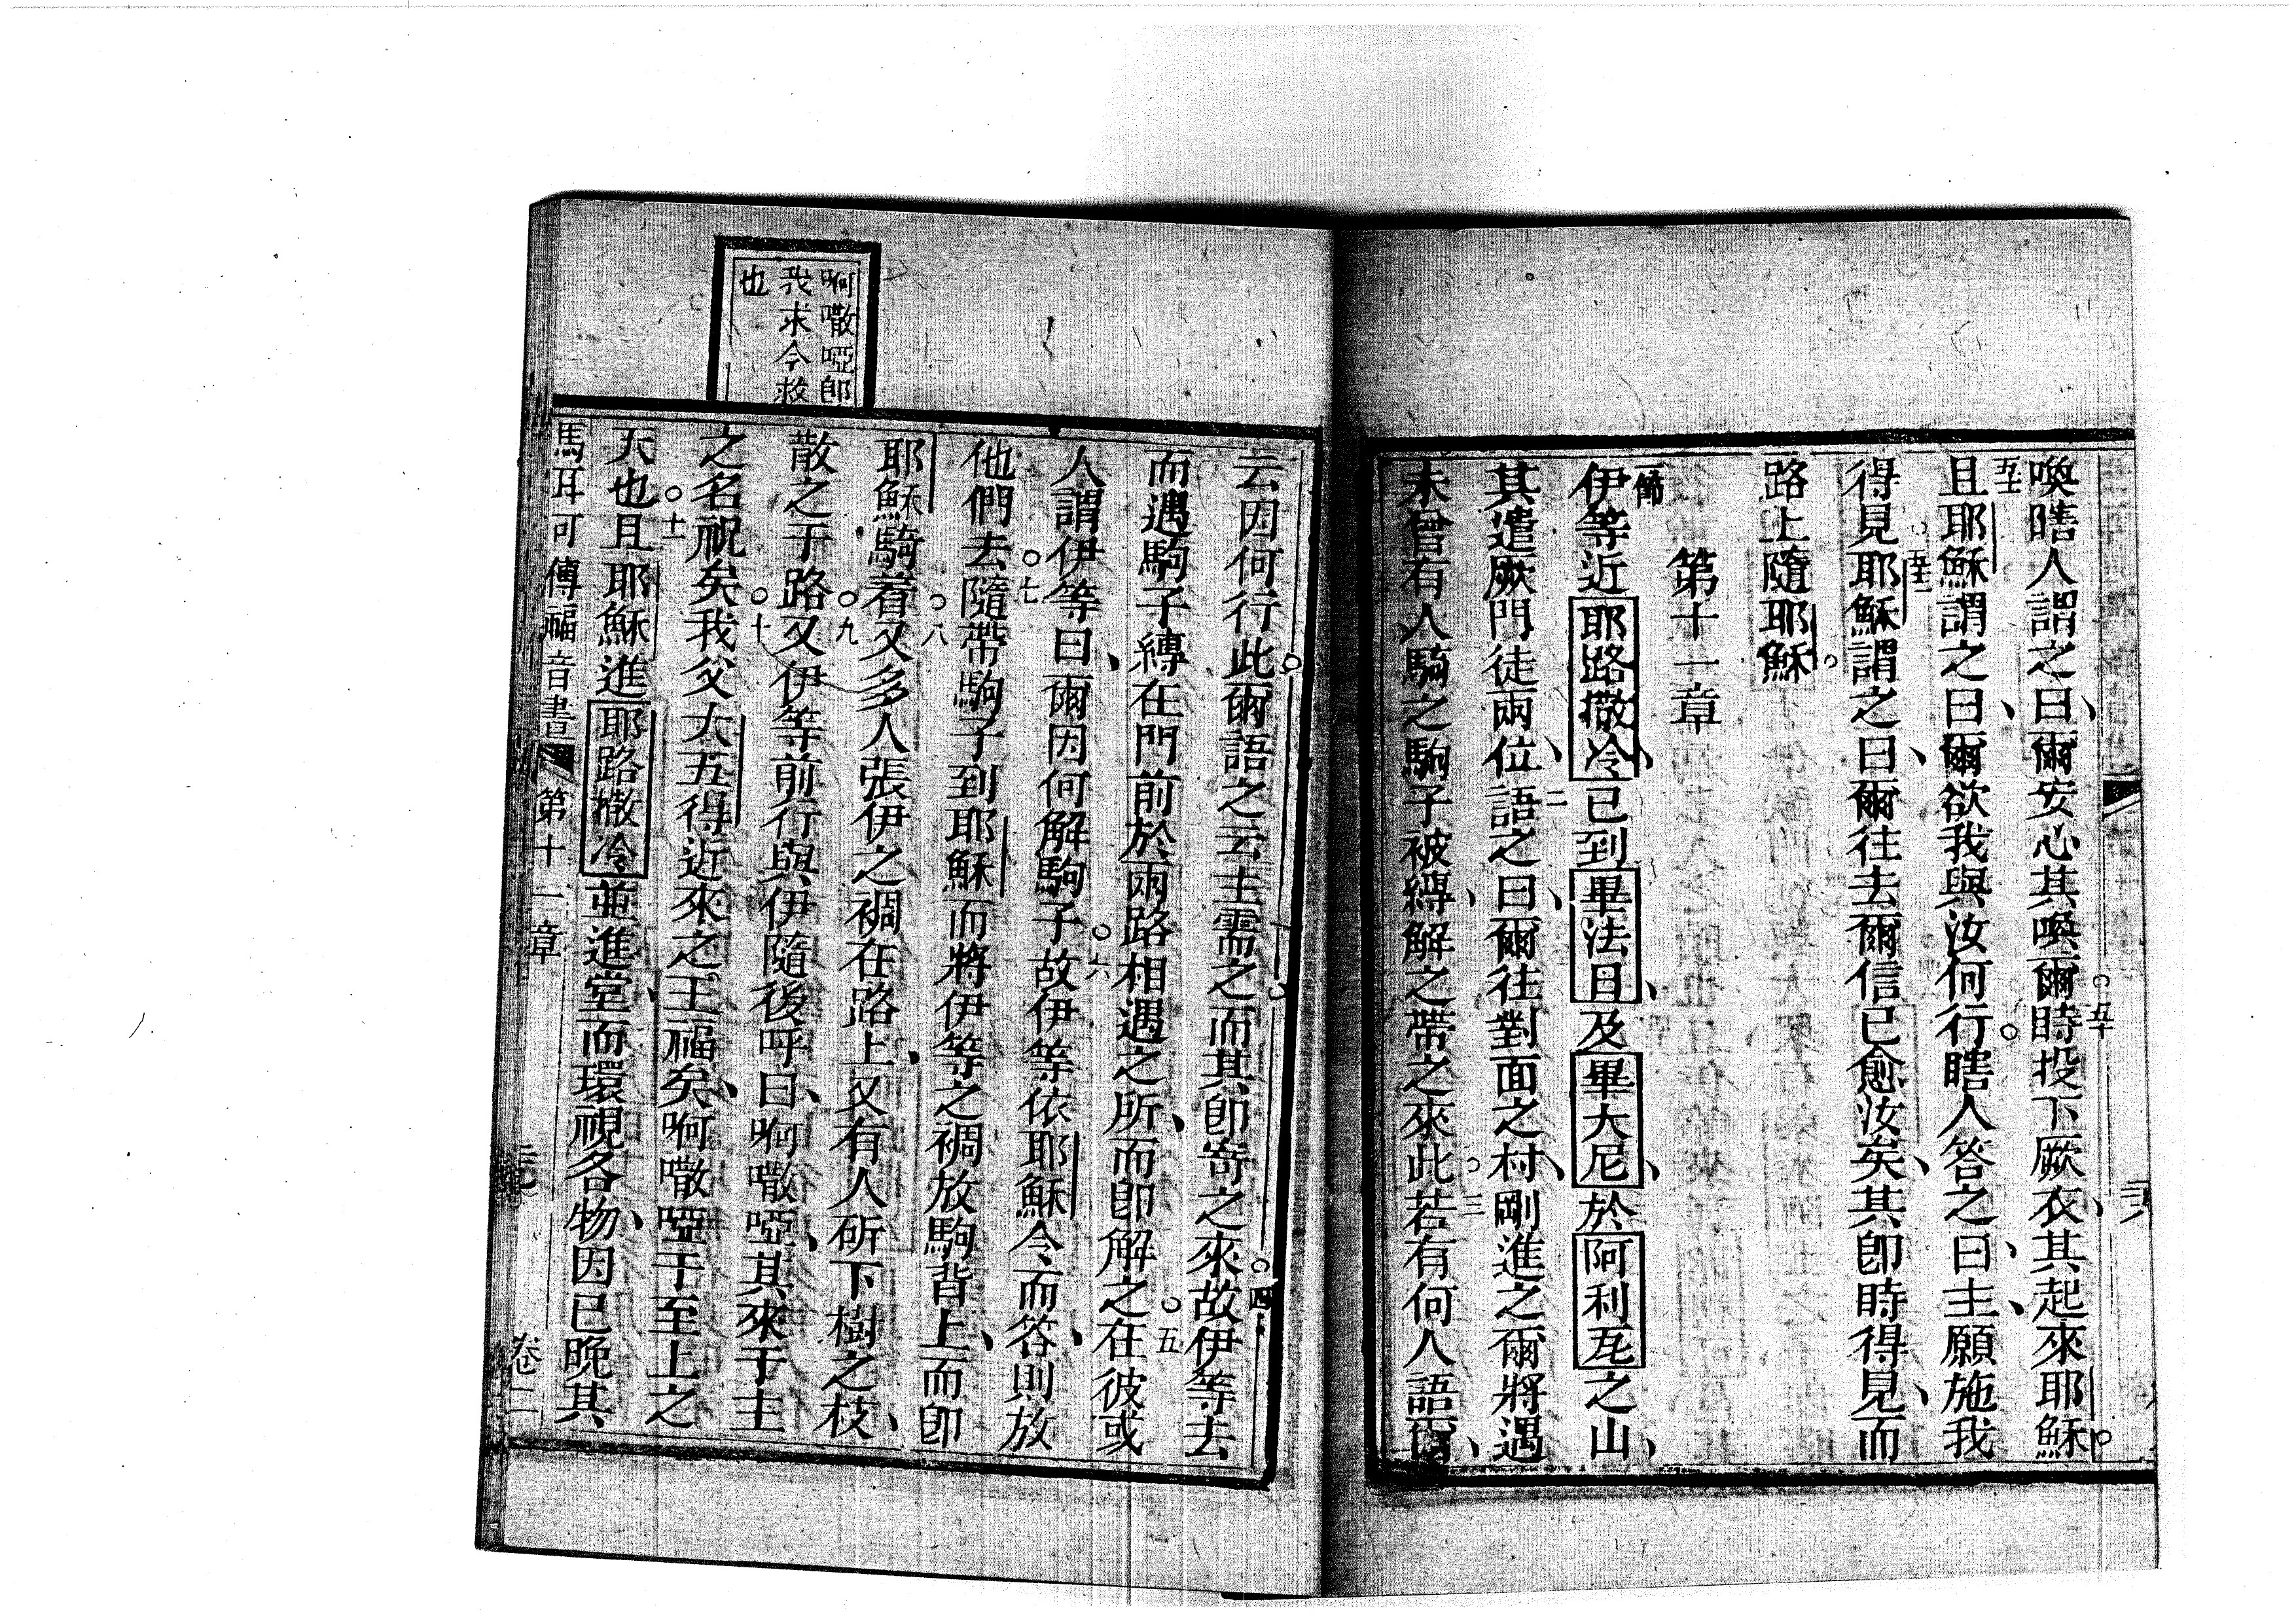 喚瞎人謂之曰爾安心其喚爾時投下厥衣其起來耶穌
且耶穌謂之曰爾欲我與汝何行瞎人答之曰主願施我
得見耶穌謂之曰爾往去爾信已愈汝矣其即時得見而
路上隨耶穌
第十一章
伊等近耶路撒冷已到畢法且及畢大尼於阿利瓦之山
其遣厥門徒兩位語之曰爾往對面之村剛進之爾將遇
未曾有人騎之駒子被縛解之帶之來此若有何人語爾
云因何行此爾語之云主需之而其即寄之來故伊等去
而遇駒子縛在門前於兩路相遇之所而即解之在彼或
人謂伊等曰爾因何解駒子故伊等依耶穌令而答則放
他們去隨帶駒子到耶穌而將伊等之裯放駒背上而即
耶穌騎着又多人張伊之裯在路上又有人斫下樹之枝
散之于路又伊等前行與伊隨後呼曰啊㘔啞其來于主
之名祝矣我父大五得近來之王福矣啊㘔啞于至上之
天也且耶穌進耶路撒冷並進堂而環視各物因已晚其
啊㘔啞即
我求今救
也
馬耳可傳福音書 第十一章 卷二